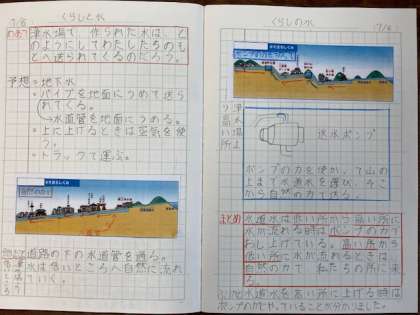 7/6
くらしと水
めあて
浄水場で、作られた水は、ど
のようにしてわたしたちのも
とへ送られてくるのだろう。
予想
・地下水
・パイプを地面にうめて送ら
れてくる。
→水道管を地面にうめる。
・上に上げるときは空気を使
う。
・トラックで運ぶ。
自然の力
道路の下の水道管を通る。
水は低いところへ自然に流れ
ていく。
くらしの水
7/6
ポンプの力
高い場所
送水ポンプ
ポンプの力を使って山の
上まで水道水を運び、そこ
から自然の力で送る。
まとめ
水道水は低い所から高い所に
水が流れる時はポンプの力で
おし上げている。高い所から
低い所に水が流れるときは
自然の力で私たちの所に来
る。
水道水を高い所に上げる時は
ポンプの力でやっていることが分かりました。